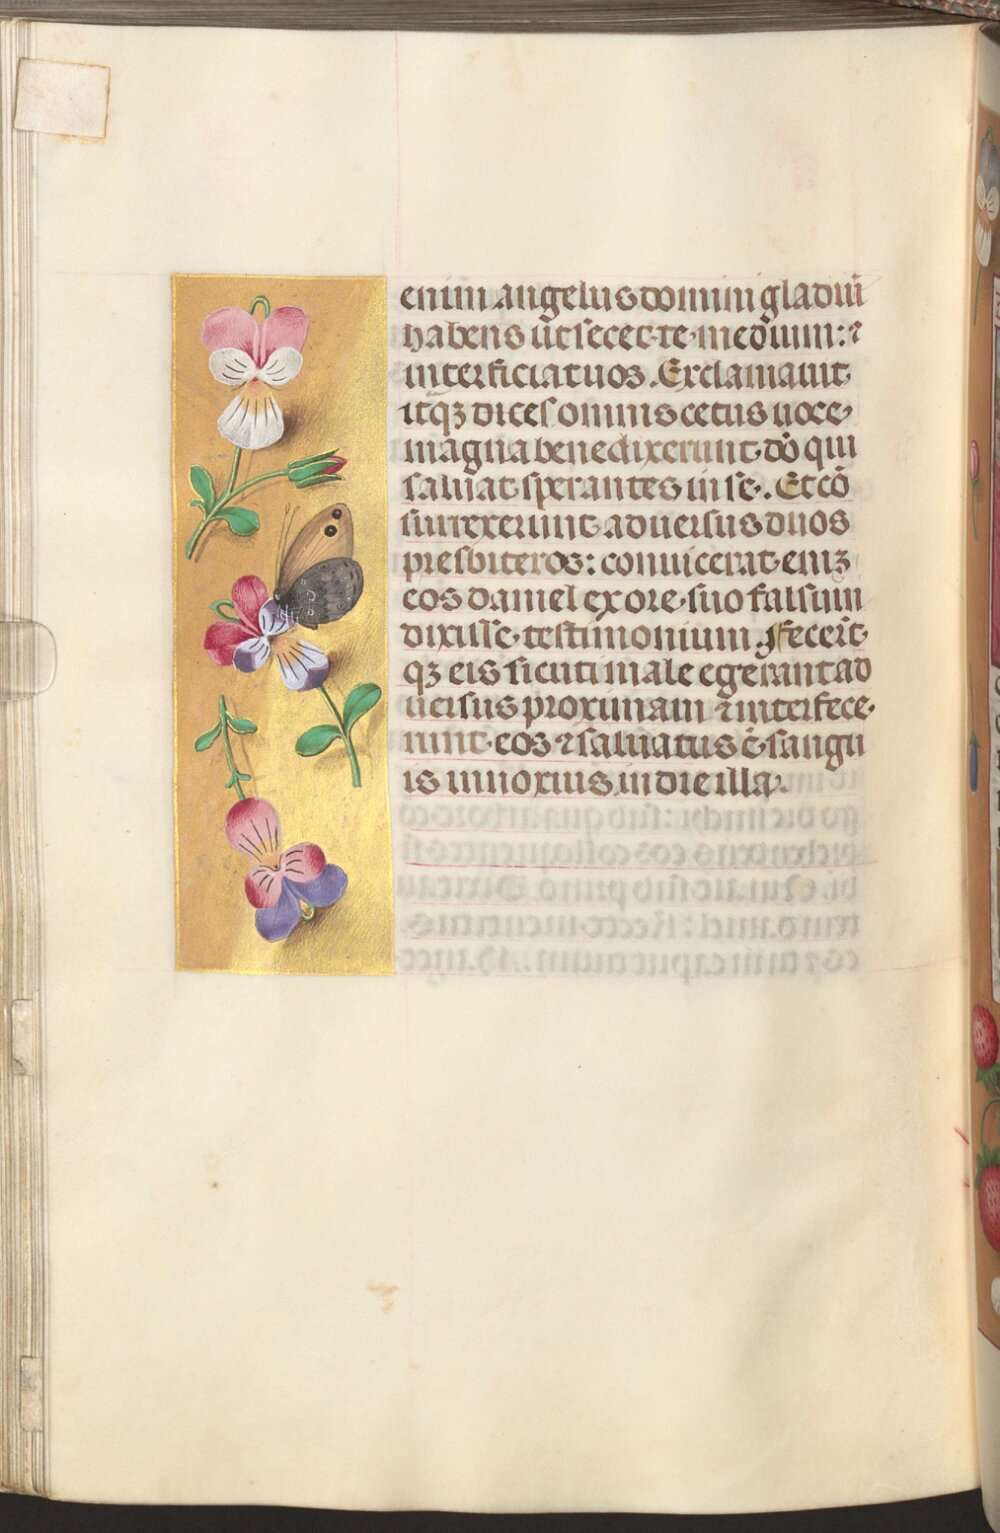 enim angelus domini gladiū
habens ut secet te medium: ⁊
interficiat uos. Exclamauit
itqꝫ dicēs omnis cetus uoce
magna benedixerunt dō qui
saluat sperantes in se. Et cō
surrexerunt aduersus duos
presbiteros: conuicerat eniꝫ
eos daniel ex ore suo falsum
dixisse testimonium fecerūt
qꝫ eis sicuti male egerant ad
uersus proximam ⁊ interfece
runt eos ⁊ saluatus ē sangu
is innoxius in die illa.